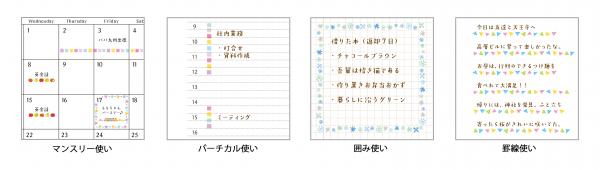 Wednesday Thursday Friday Sat
1 2 3 4
パパ九州出張
8 9 10 11
英会話
15 16 17 18
英会話
22 23 24 25
マンスリー使い
9
社内業務
10
・打合せ
11
・資料作成
12
13
14
15
ミーティング
16
バーチカル使い
借りた本(返却7日)
・チャコールブラウン
・吾輩は招き猫である
・作り置きお弁当おかず
・暮らしに沿うグリーン
囲み使い
今日は友達と天王寺へ
高層ビルに登って楽しかったな。
お昼は、行列のできるつけ麺を
食べれて大満足!!
帰りには、神社を発見。ふとたち
寄ったら桜がきれいに咲いてた。
罫線使い